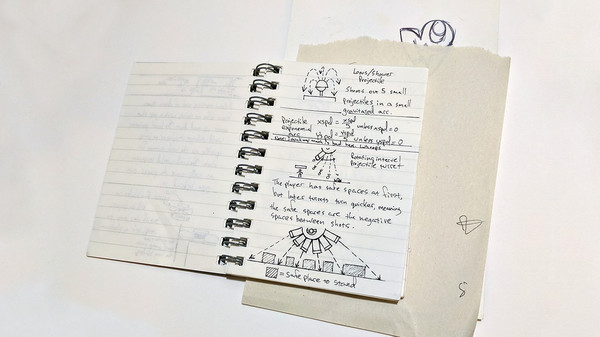 Projectile
Shoots out 5 small
projectiles in a small
gravitated arc.
Projectile xspd =
exponential
arc
unless yspd = 0
Rotating interval
Projectile turret
The player has safe spaces at first,
but later turrets turn quicker, meaning
the safe spaces are the negative
spaces between shots.
= safe place to stand